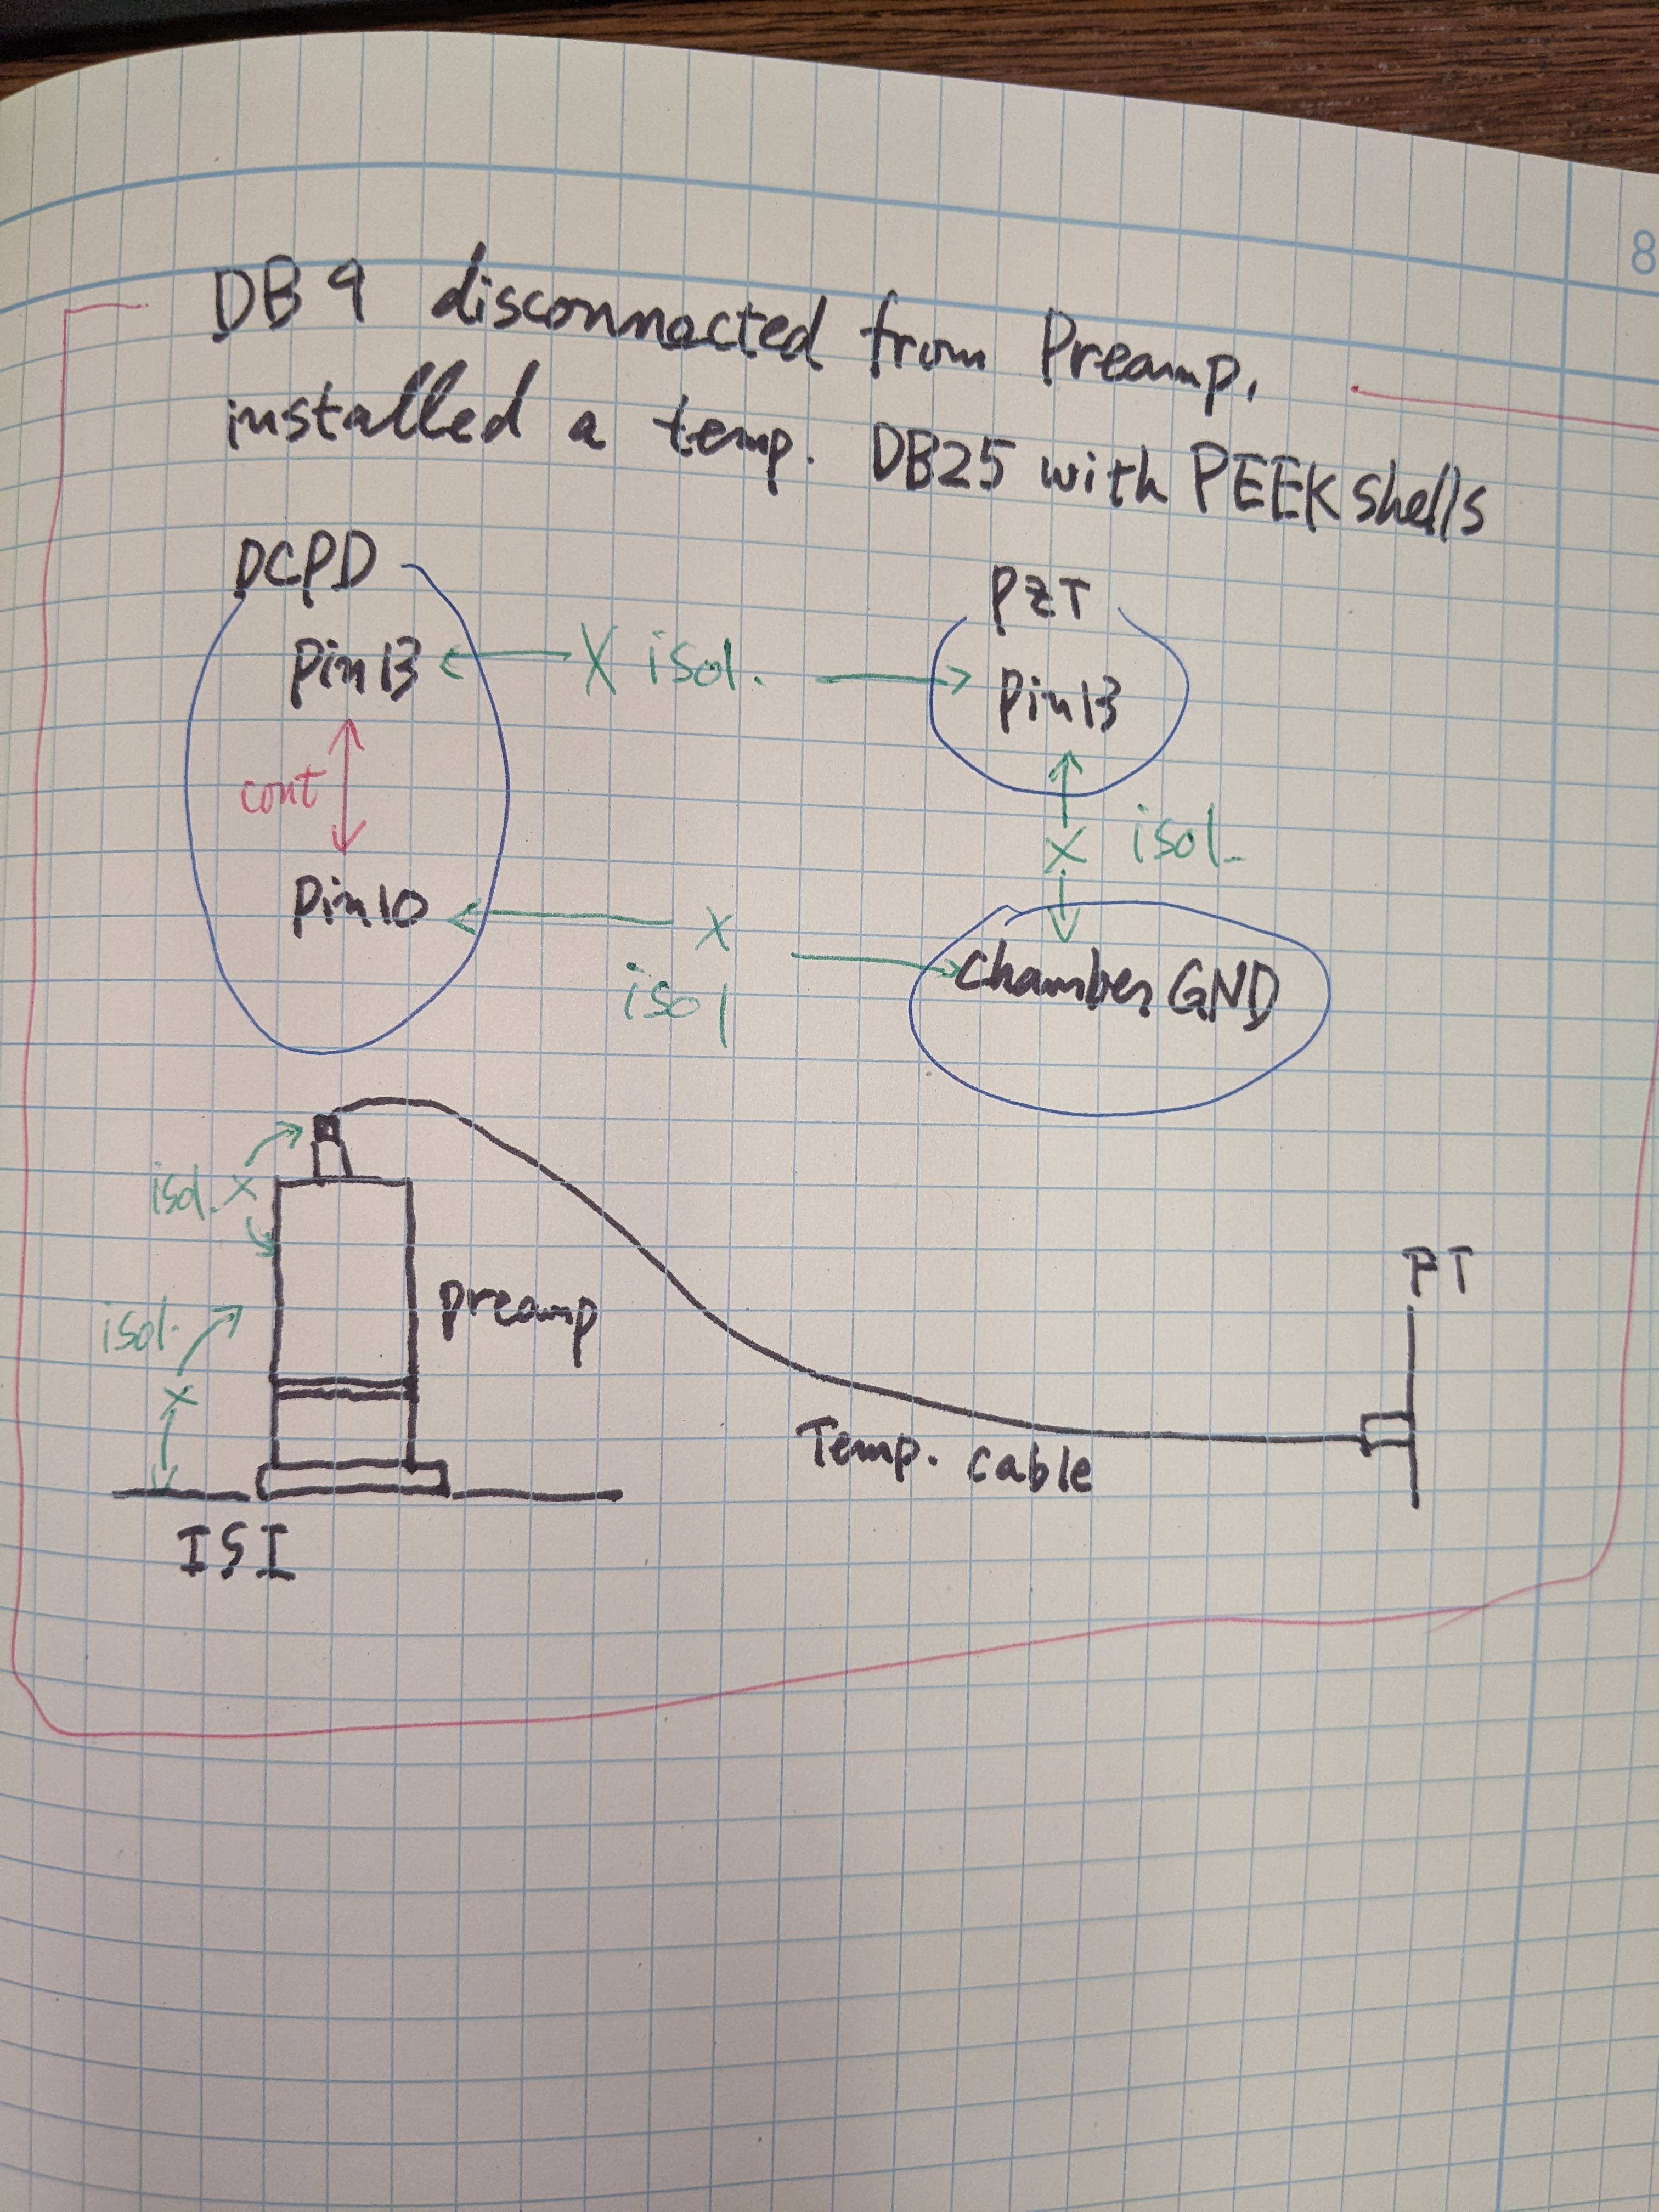 8
DB9 disconnected from Preamp.
installed a temp. DB25 with PEEK shells
DCPD
PZT
Pin13
X isol.
Pin13
cont
X isol.
Pin10
X
isol
chamber GND
isol. X
PT
isol.
preamp
X
Temp. cable
ISI